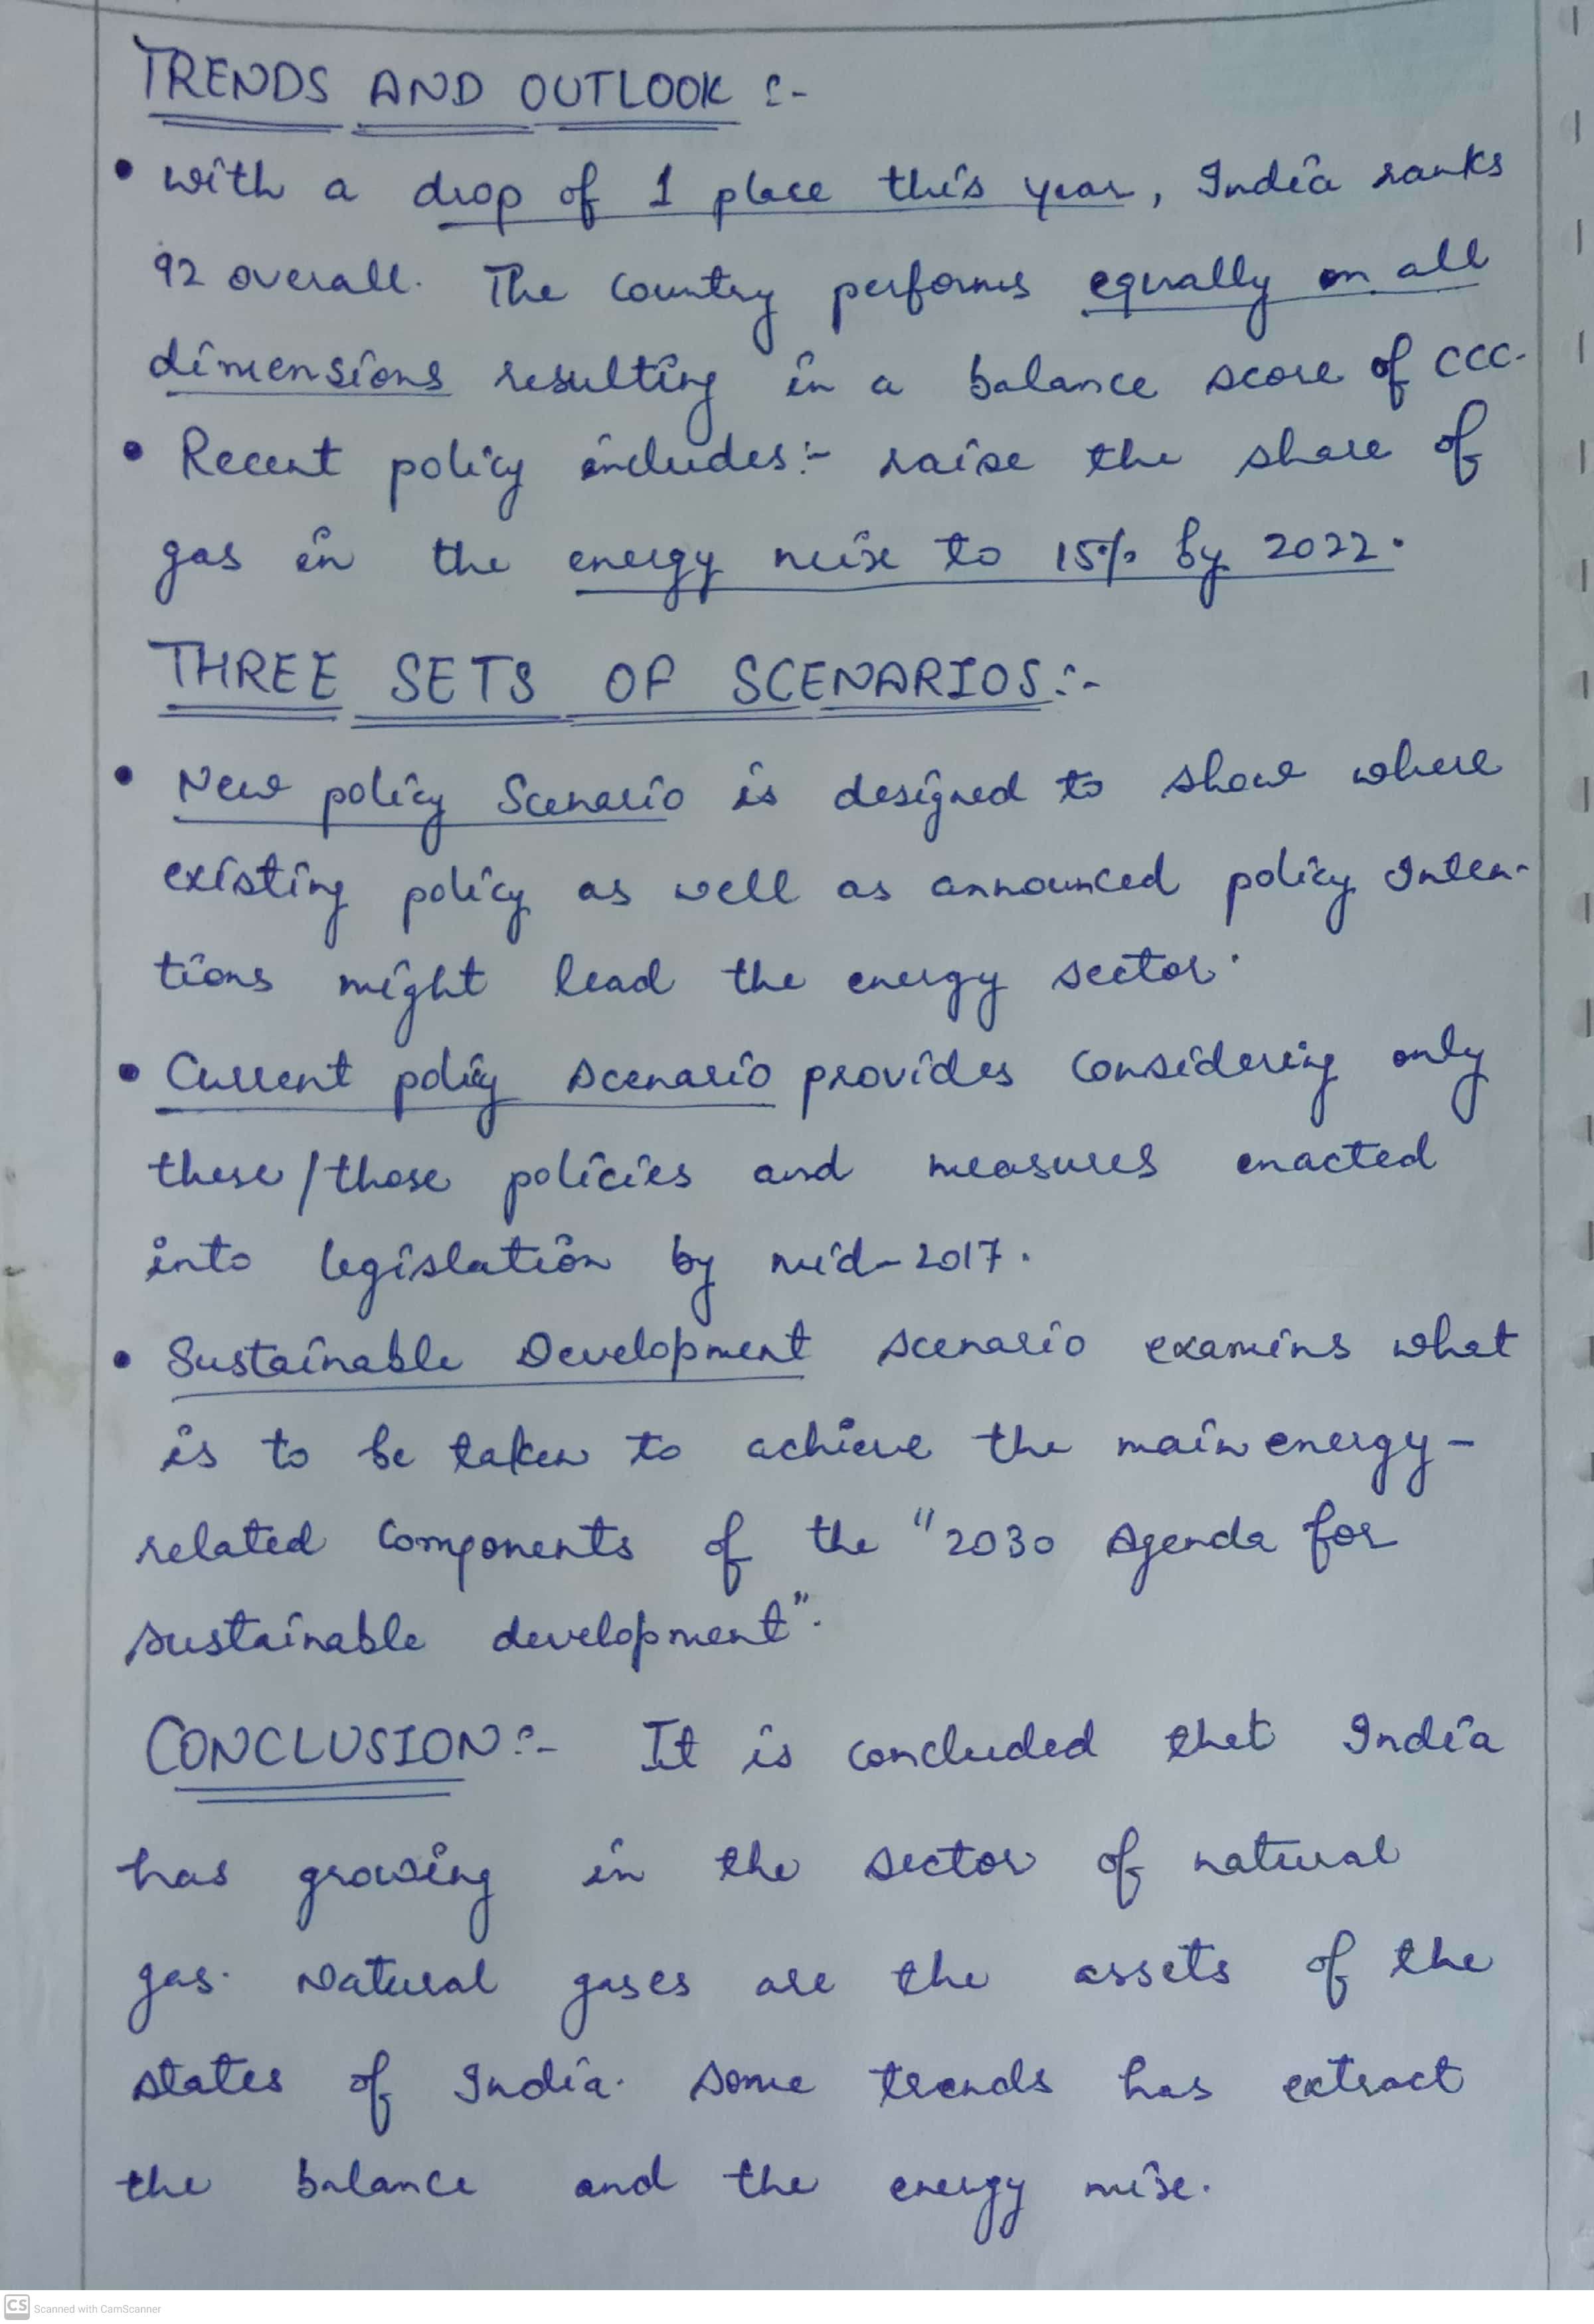 TRENDS AND OUTLOOK :-
• with a drop of 1 place this year, India ranks
92 overall. The country performs equally on all
dimensions resulting in a balance score of CCC.
• Recent policy includes:- raise the share of
gas in the energy mix to 15% by 2022.
THREE SETS OF SCENARIOS:-
• New policy Scenario is designed to show where
existing policy as well as announced policy Inten-
tions might lead the energy sector.
• Current policy scenario provides considering only
these/those policies and measures enacted
into legislation by mid-2017.
• Sustainable Development scenario examins what
is to be taken to achieve the main energy-
related components of the "2030 Agenda for
sustainable development".
CONCLUSION:- It is concluded that India
has growing in the sector of natural
gas. Natural gases are the assets of the
states of India. Some trends has extract
the balance and the energy mix.
CS Scanned with CamScanner